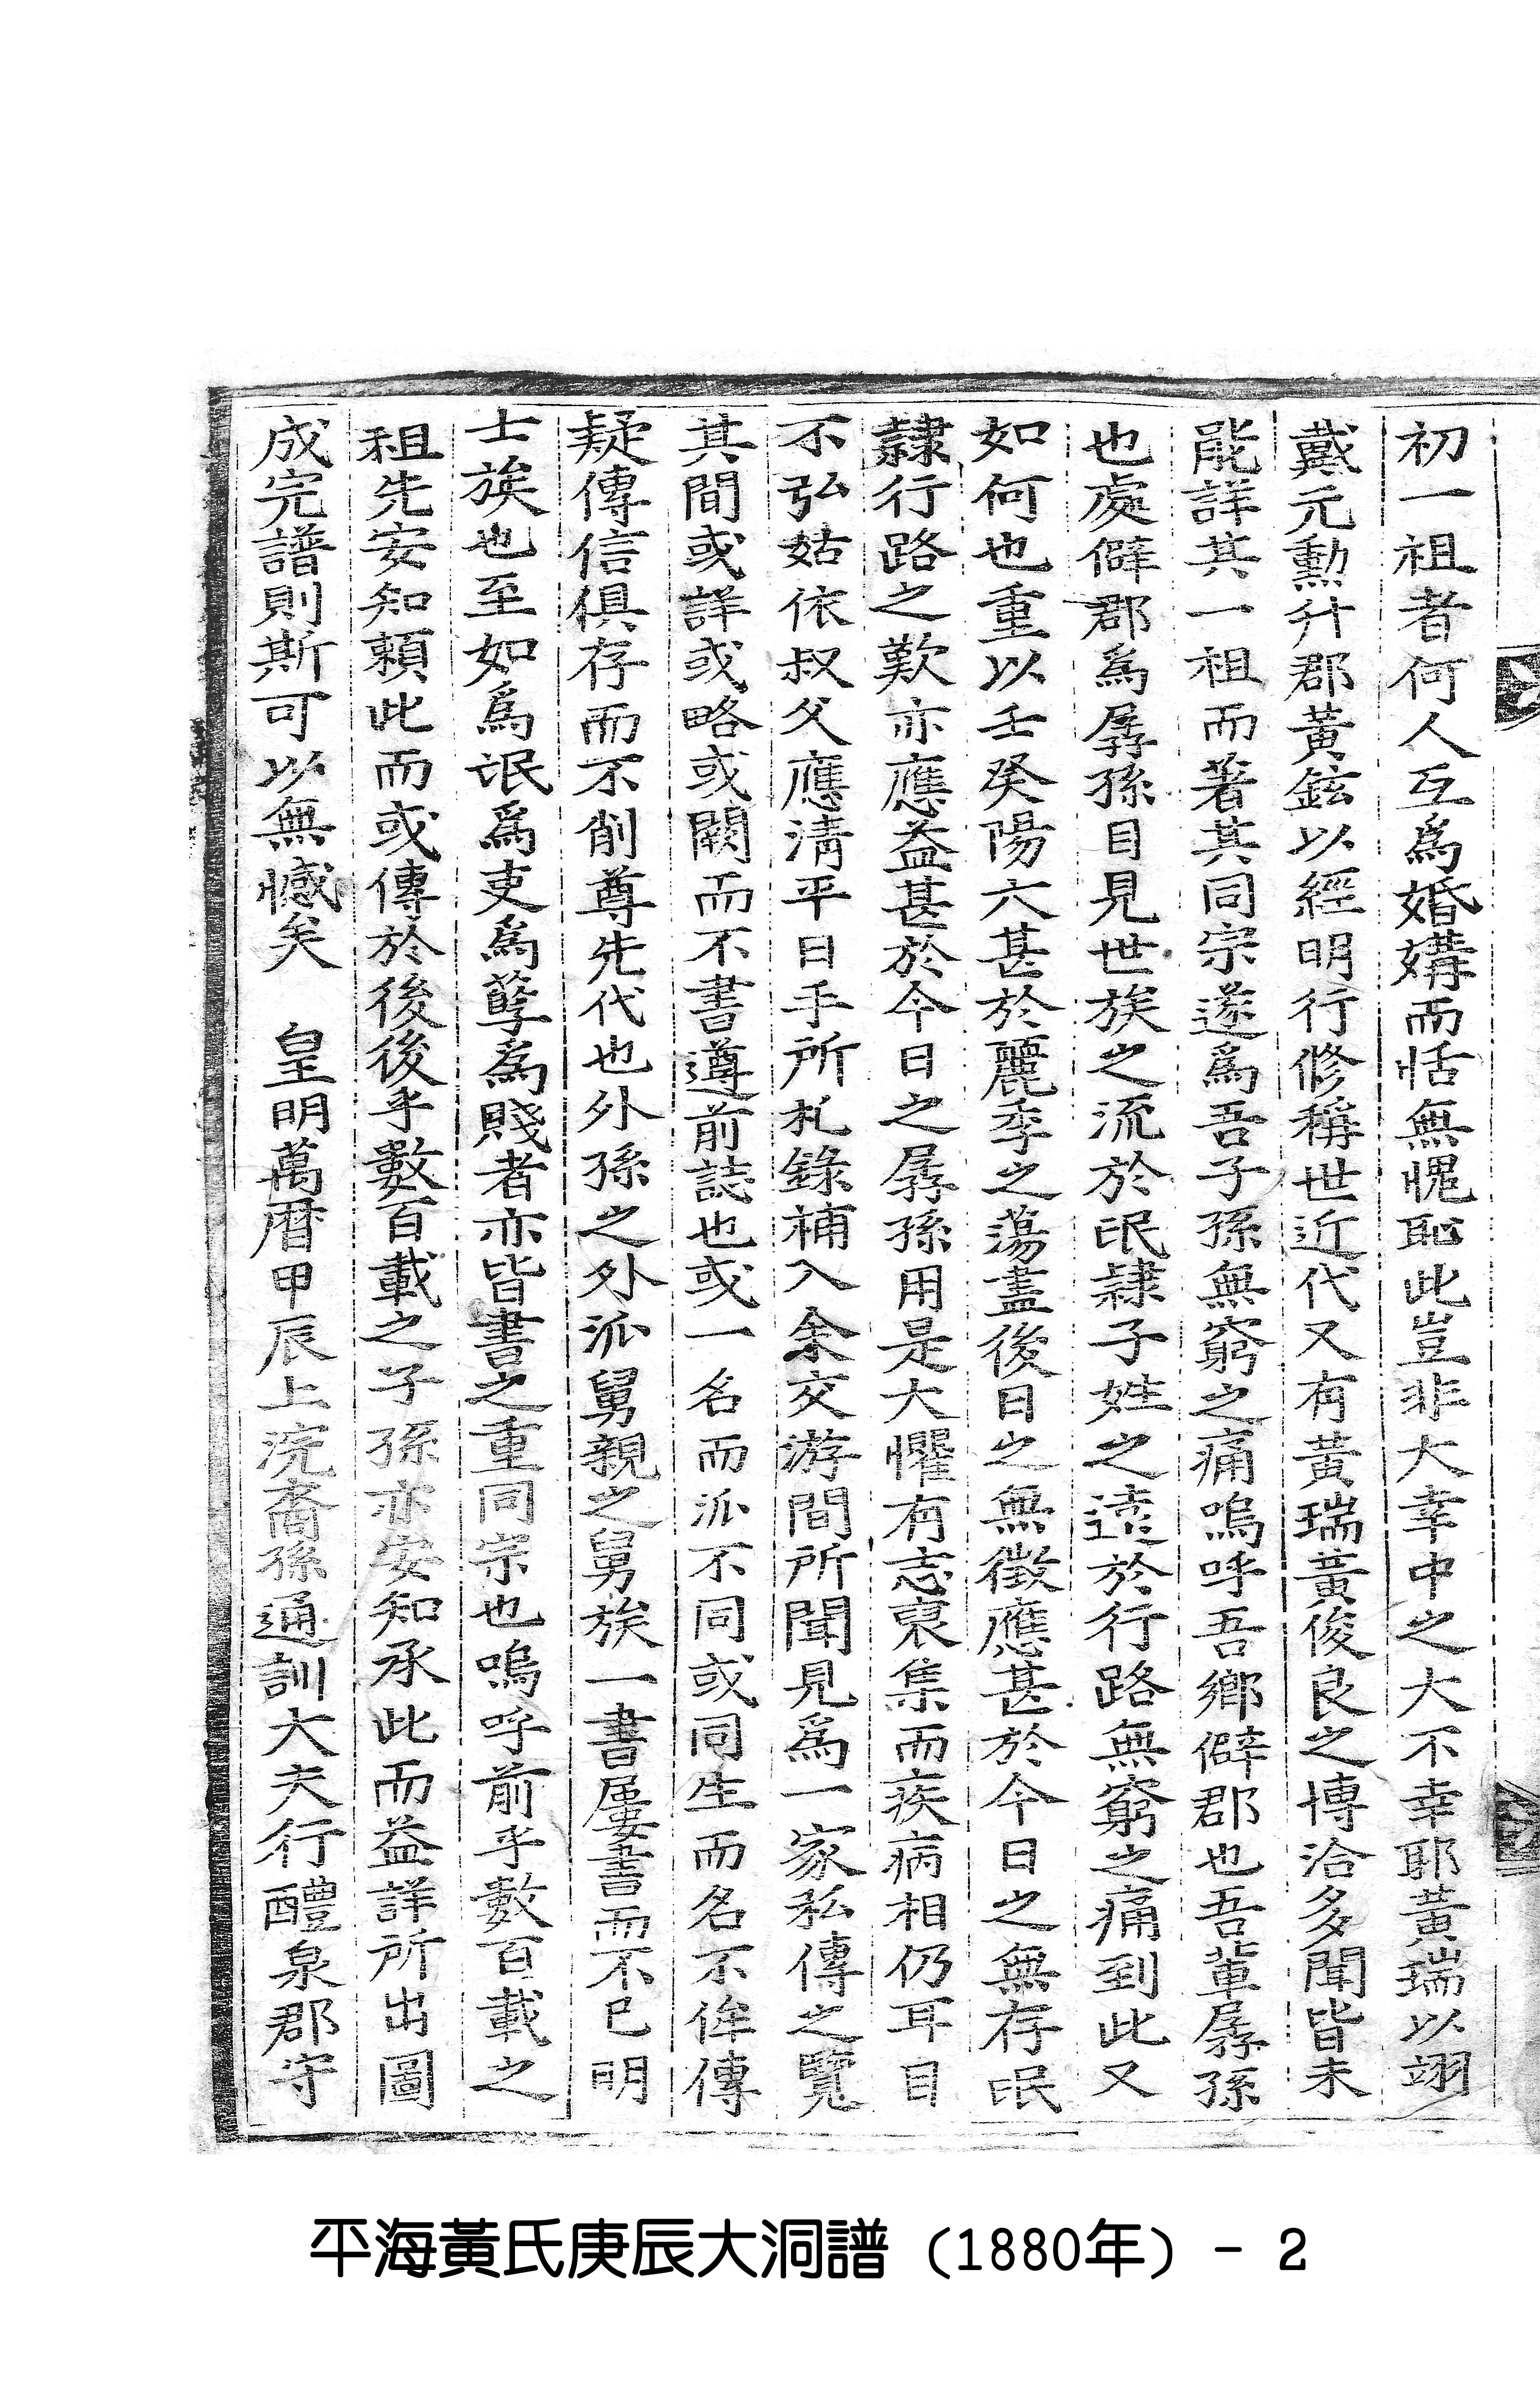 初一祖者何人互爲婚媾而恬無愧恥此豈非大幸中之大不幸耶黃瑞以翊
戴元勳升郡黃鉉以經明行修稱世近代又有黃瑞黃俊良之博洽多聞皆未
能詳其一祖而著其同宗遂爲吾子孫無窮之痛嗚呼吾鄉僻郡也吾輩孱孫
也處僻郡爲孱孫目見世族之流於氓隷子姓之遠於行路無窮之痛到此又
如何也重以壬癸陽六甚於麗季之蕩盡後日之無徵應甚於今日之無存氓
隷行路之歎亦應益甚於今日之孱孫用是大懼有志裒集而疾病相仍耳目
不弘姑依叔父應淸平日手所札錄補入余交游間所聞見爲一家私傳之覽
其間或詳或略或闕而不書遵前誌也或一名而派不同或同生而名不侔傳
疑傳信俱存而不削尊先代也外孫之外派舅親之舅族一書屢書而不已明
士族也至如爲氓爲吏爲孼爲賤者亦皆書之重同宗也嗚呼前乎數百載之
祖先安知賴此而或傳於後後乎數百載之子孫亦安知承此而益詳所出圖
成完譜則斯可以無憾矣 皇明萬曆甲辰上浣裔孫通訓大夫行醴泉郡守
平海黃氏庚辰大洞譜 (1880年) - 2